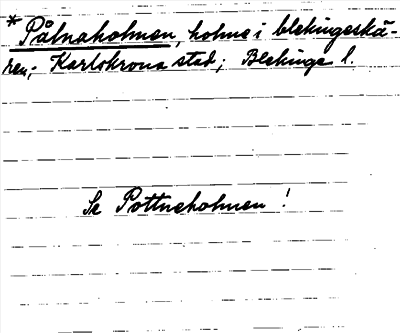 * Pålnaholmen, holme i blekingeskä-
ren; Karlskrona stad; Blekinge l.
Se Pottneholmen!